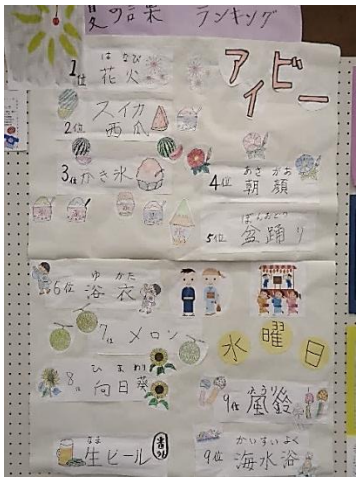 夏の言葉 ランキング
アイビー
はなび
1位 花火
スイカ
2位 西瓜
3位 かき氷
あさ がお
4位 朝顔
ぼんおどり
5位 盆踊り
ゆ かた
6位 浴衣
7位 メロン
水曜日
ひまわり
8位 向日葵
ふうりん
9位 風鈴
なま
生ビール
番外
かいすいよく
9位 海水浴